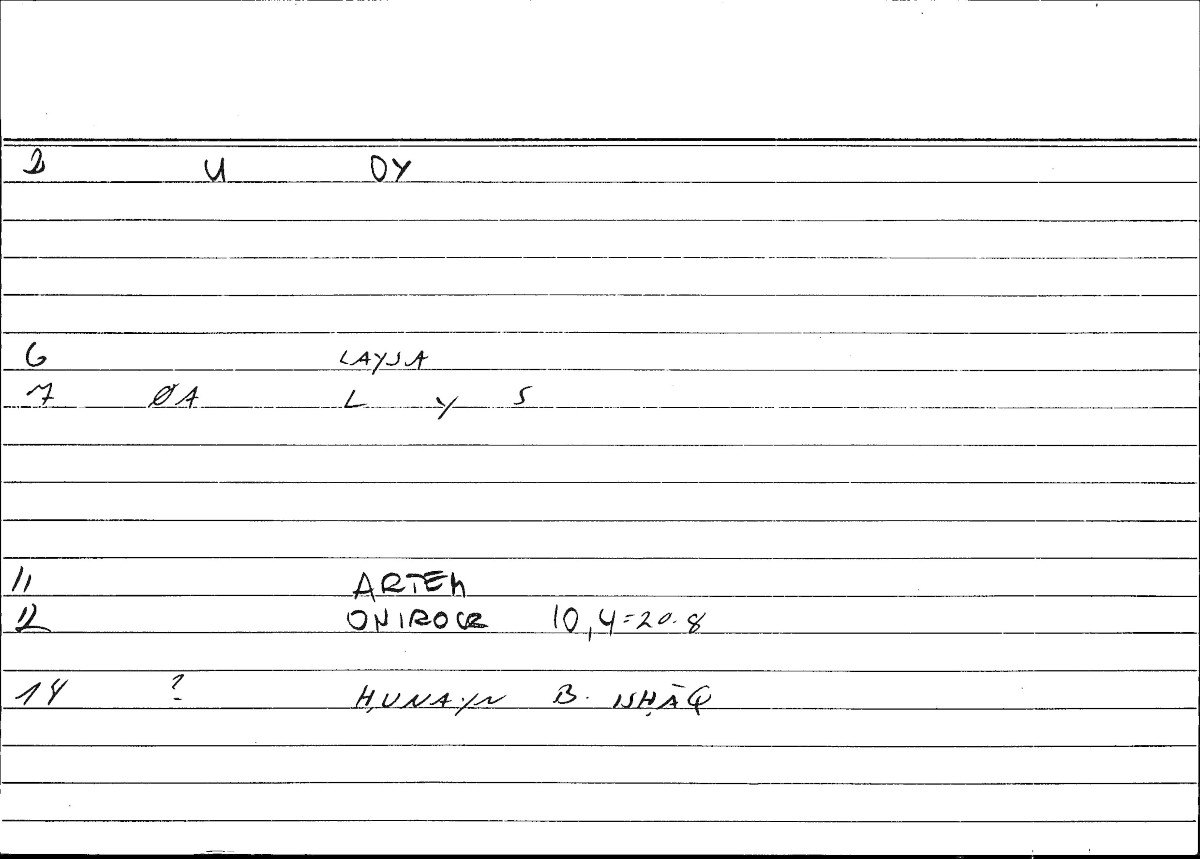 2 U OY
6 LAYSA
7 ØA L Y S
11 ARTEM
12 ONIROCR 10,4=20.8
14 ? ḤUNAYN B. ISḤĀQ